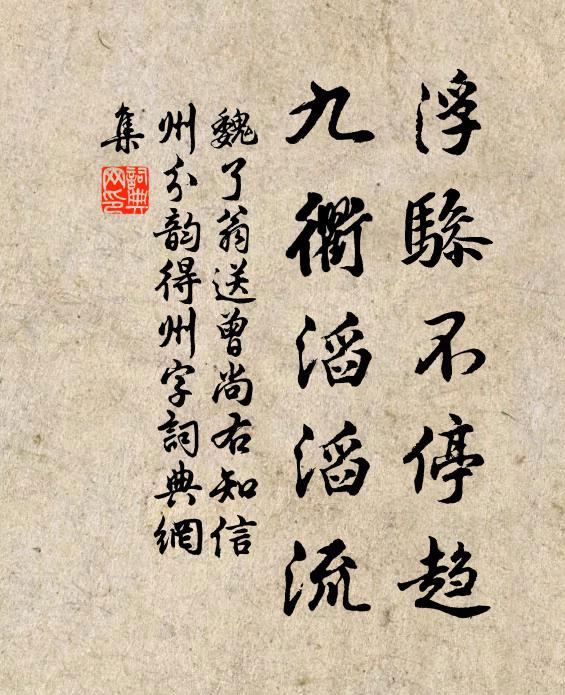 浮骖不停趋
九衢滔滔流
魏了翁送曾尚右知信
州分韵得州字詞典網
集
詞典网印